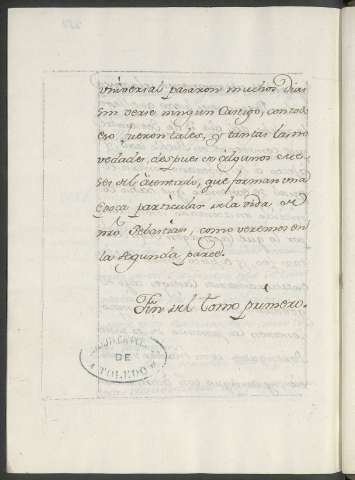 universal pasaron muchos dias
sin verse ningun Castigo, con todo
eso fueron tales, y tantas las no
vedades, despues en algunos me-
ses del atentado, que forman una
Epoca particular de la vida de
nrõ Sebastian, como veremos en
la segunda parte.
Fin del Tomo primero.
DE
TOLEDO